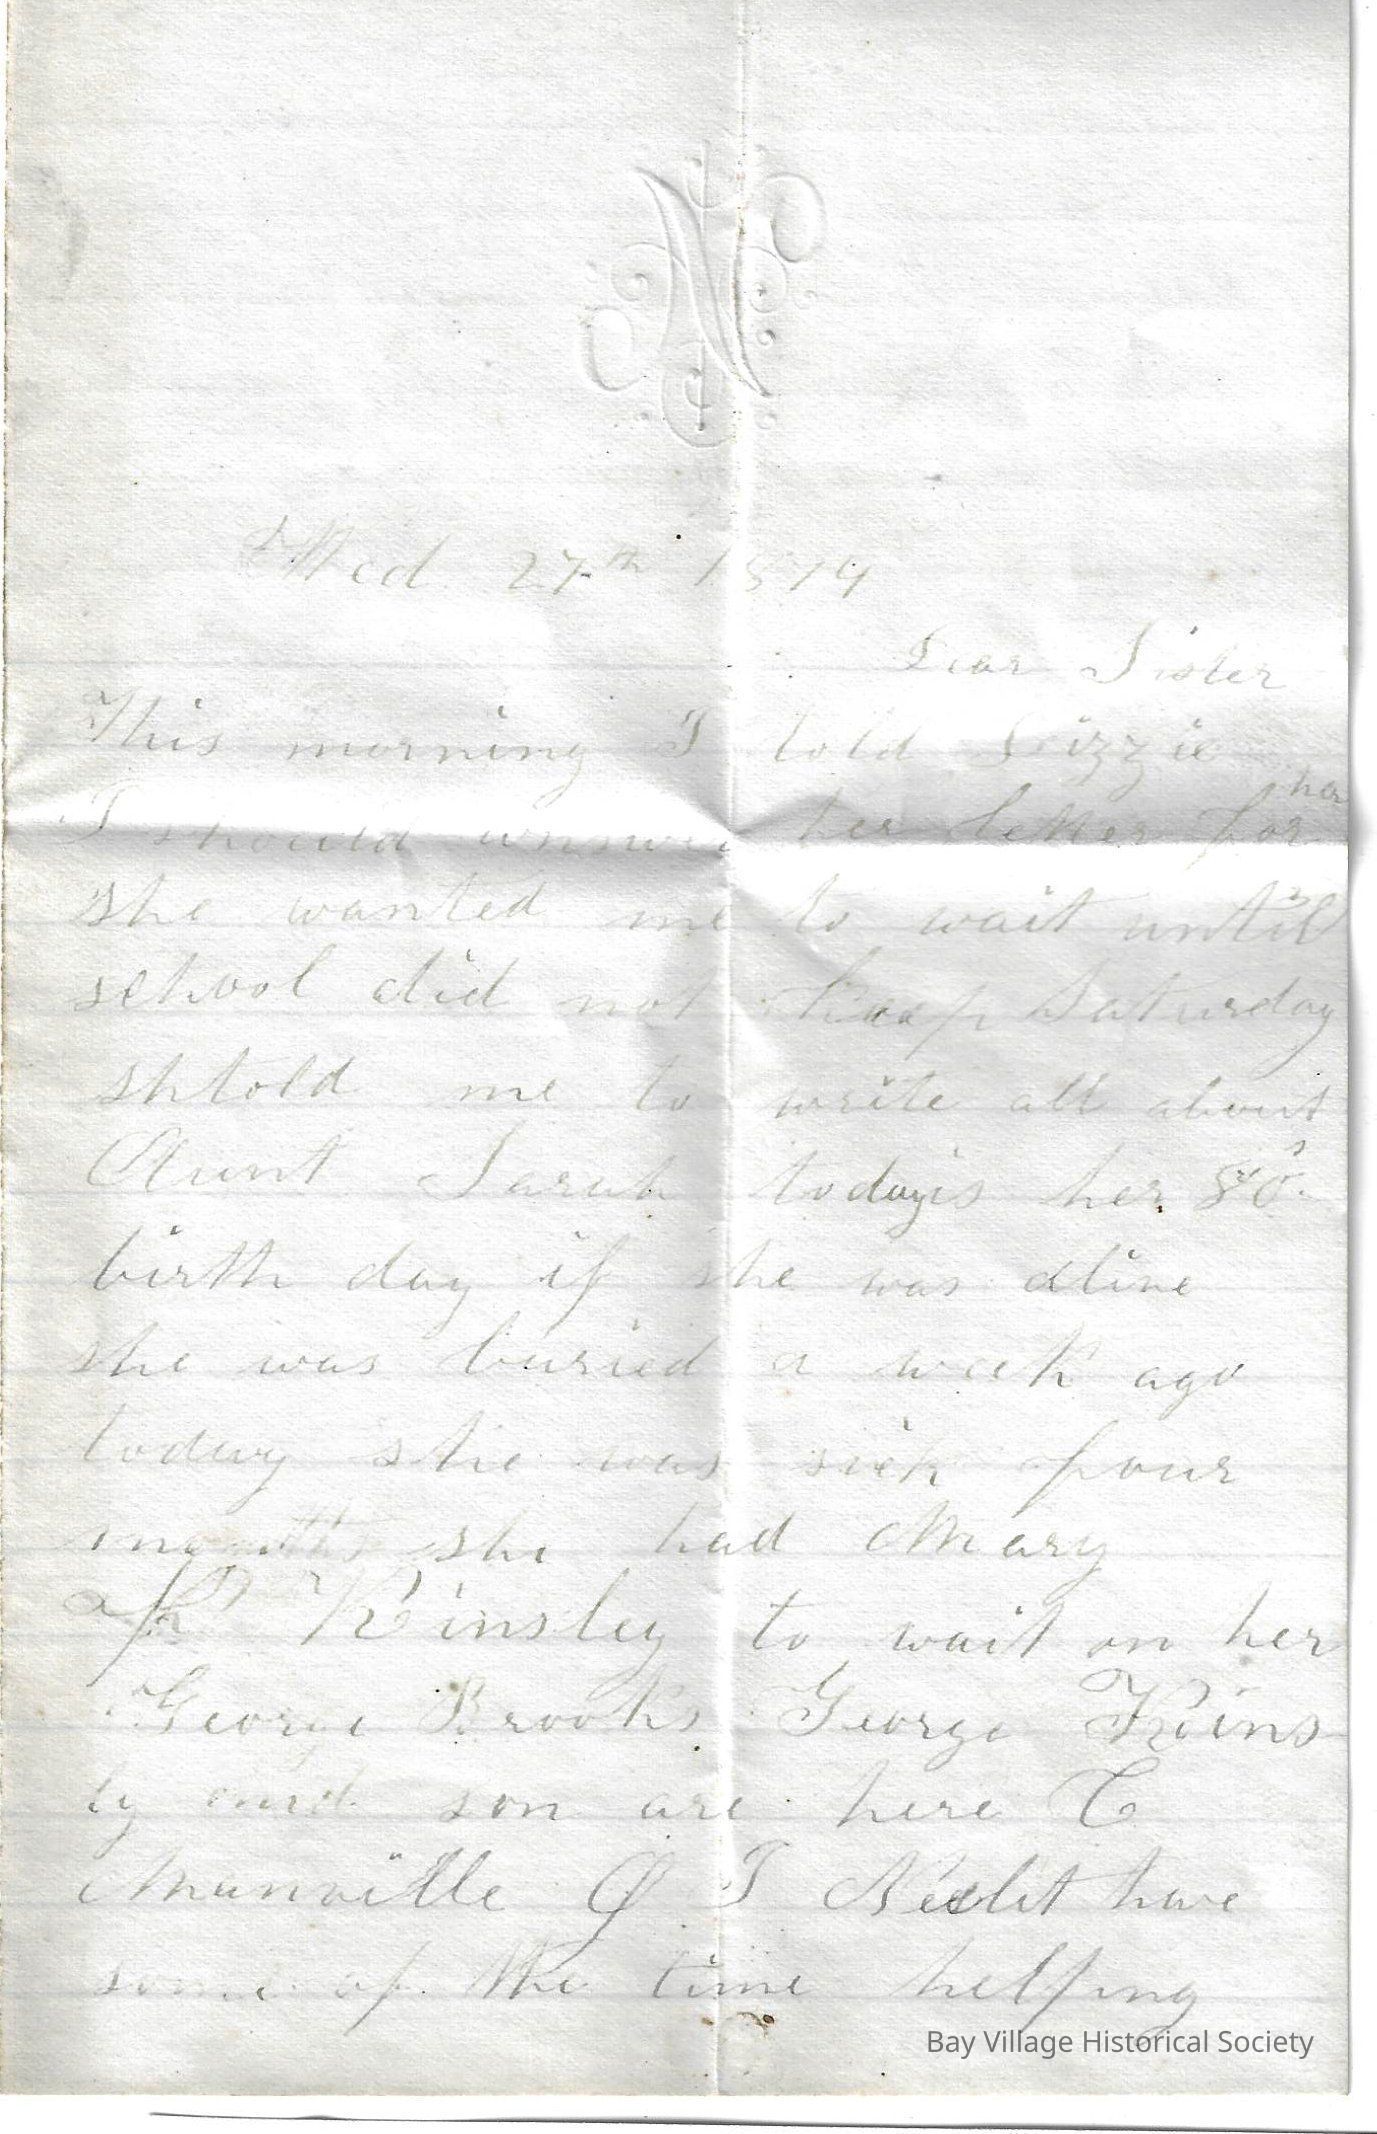 Wed 27th 1879
Dear Sister
This morning I told Lizzie
I should answer her letter for her
she wanted me to wait until
school did not keep Saturday
shtold me to write all about
Aunt Sarah todayis her 80
birth day if she was alive
she was buried a week ago
today she was sick four
months she had Mary
Kinsley to wait on her
George Brooks George Kins-
ly and son are here C
Manville O J Nesbit have
some of the time helping
Bay Village Historical Society